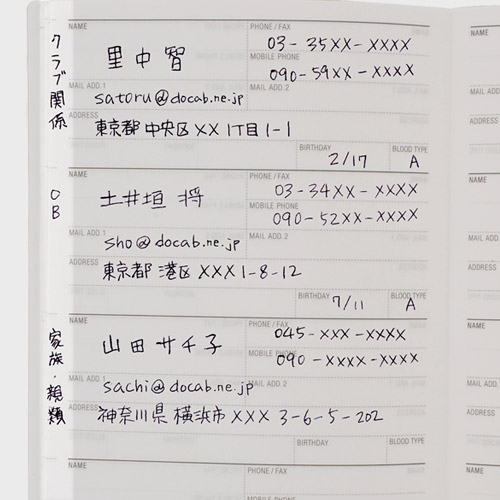 クラブ関係
NAME
里中智
PHONE / FAX
03-35XX-XXXX
MOBILE PHONE
090-59XX-XXXX
MAIL ADD.1
satoru@docab.ne.jp
MAIL ADD.2
ADDRESS
東京都中央区XX 1丁目1-1
BIRTHDAY
2/17
BLOOD TYPE
A
OB
NAME
土井垣 将
PHONE / FAX
03-34XX-XXXX
MOBILE PHONE
090-52XX-XXXX
MAIL ADD.1
sho@docab.ne.jp
MAIL ADD.2
ADDRESS
東京都 港区XXX 1-8-12
BIRTHDAY
7/11
BLOOD TYPE
A
家族・親類
NAME
山田サチ子
PHONE / FAX
045-XXX-XXXX
MOBILE PHONE
090-XXXX-XXXX
MAIL ADD.1
sachi@docab.ne.jp
MAIL ADD.2
ADDRESS
神奈川県横浜市XXX 3-6-5-202
BIRTHDAY
BLOOD TYPE
NAME
PHONE / FAX
NAME
MAIL ADD.
ADDRESS
NAME
MAIL ADD.
ADDRESS
NAME
MAIL ADD.
ADDRESS
NAME